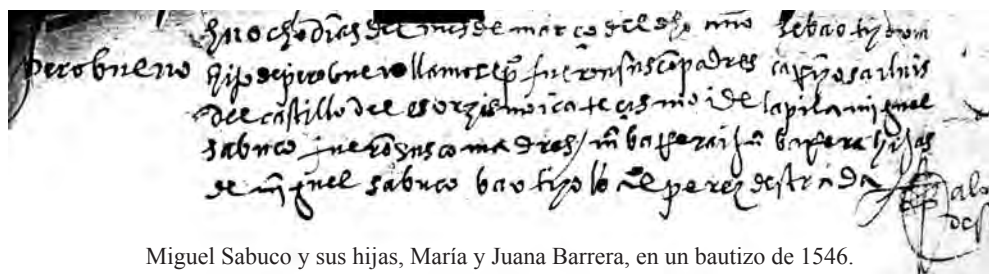 pero bueno
en ocho dias del mes de março del dho año se bautizo un
hijo de pero bueno llamose p° fueron sus conpadres luis
del castillo del esorzismo i catecismo i de la pila miguel
sabuco fueron sus comadres / m̃ barrera i ju̅ barrera hijas
de miguel sabuco bautizolo el perez destrada
Miguel Sabuco y sus hijas, María y Juana Barrera, en un bautizo de 1546.